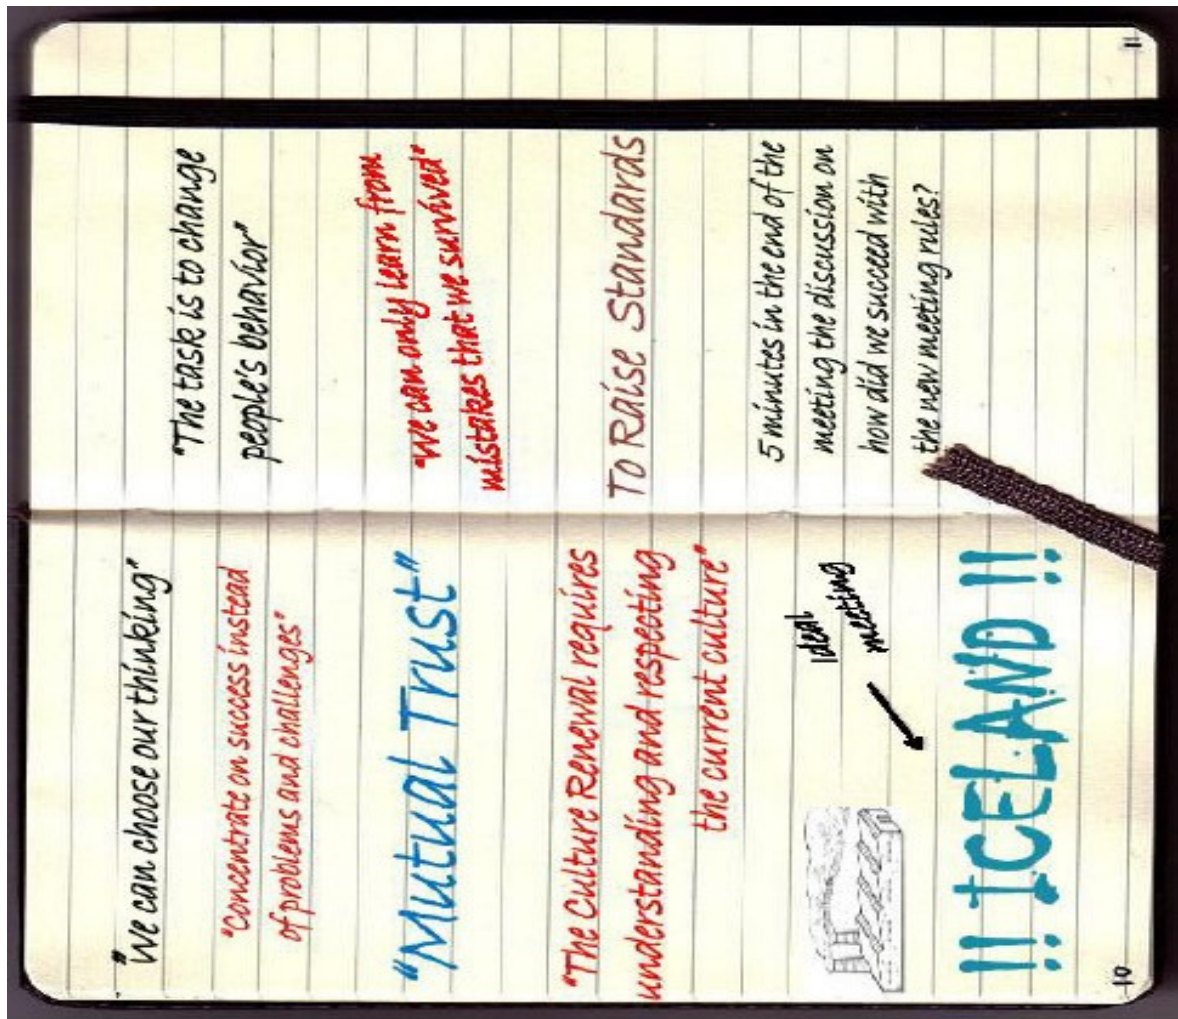 "We can choose our thinking"
"Concentrate on success instead
of problems and challenges"
"Mutual Trust"
"The Culture Renewal requires
understanding and respecting
the current culture"
Ideal
meeting
!! ICELAND !!
10
"The task is to change
people's behavior"
"We can only learn from
mistakes that we survived"
To Raise Standards
5 minutes in the end of the
meeting the discussion on
how did we succeed with
the new meeting rules?
11